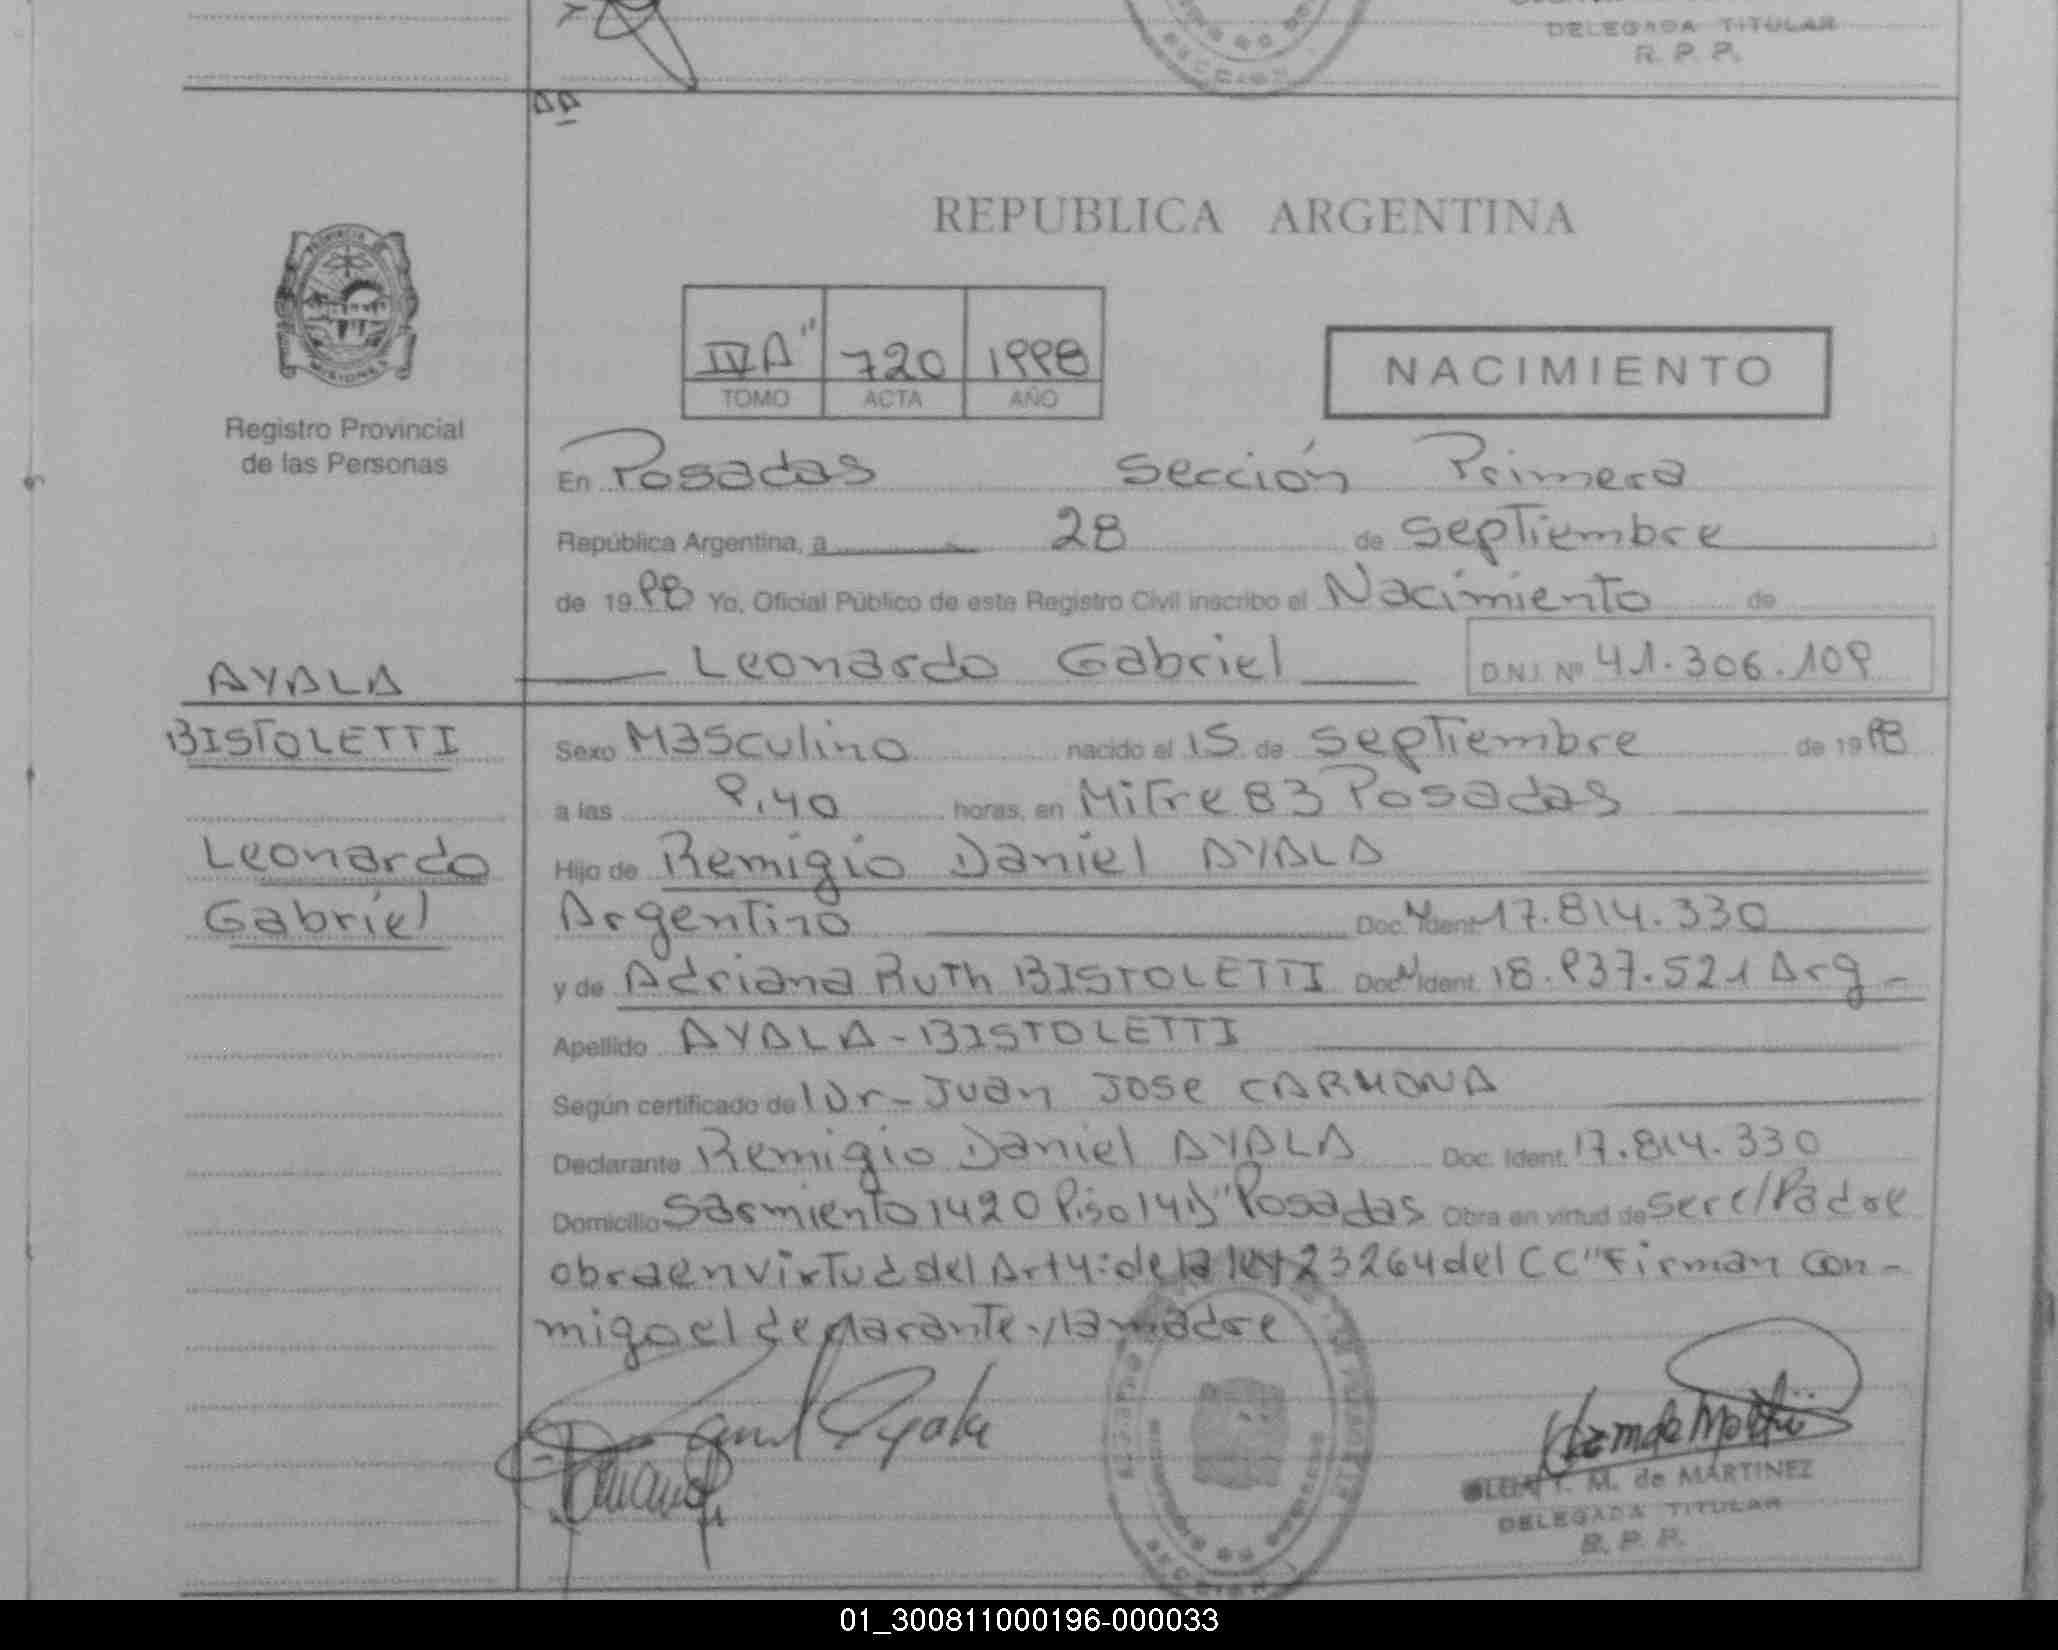 DELEGADA TITULAR
R. P. P.
REPUBLICA ARGENTINA
IV A" 720 1998
TOMO ACTA AÑO
NACIMIENTO
Registro Provincial
de las Personas
En Posadas Sección Primera
República Argentina, a 28 de Septiembre
de 1998 Yo, Oficial Público de este Registro Civil inscribo el Nacimiento de
Leonardo Gabriel D.N.I. Nº 41.306.109
AYALA
BISTOLETTI
Leonardo
Gabriel
Sexo Masculino nacido el 15 de Septiembre de 1998
a las 9,40 horas, en Mitre 83 Posadas
Hijo de Remigio Daniel AYALA
Argentino Doc. Ident. 17.814.330
y de Adriana Ruth BISTOLETTI Doc. Ident. 18.937.521 Arg-
Apellido AYALA-BISTOLETTI
Según certificado de Dr- Juan Jose CARMONA
Declarante Remigio Daniel AYALA Doc. Ident. 17.814.330
Domicilio Sarmiento 1420 Piso 14 D" Posadas Obra en virtud de ser el Padre
obra en virtud del Art 4: de la ley 23264 del CC" Firman con-
migo el declarante y la madre
Daniel Ayala
T. M. de MARTINEZ
DELEGADA TITULAR
R. P. P.
01_300811000196-000033